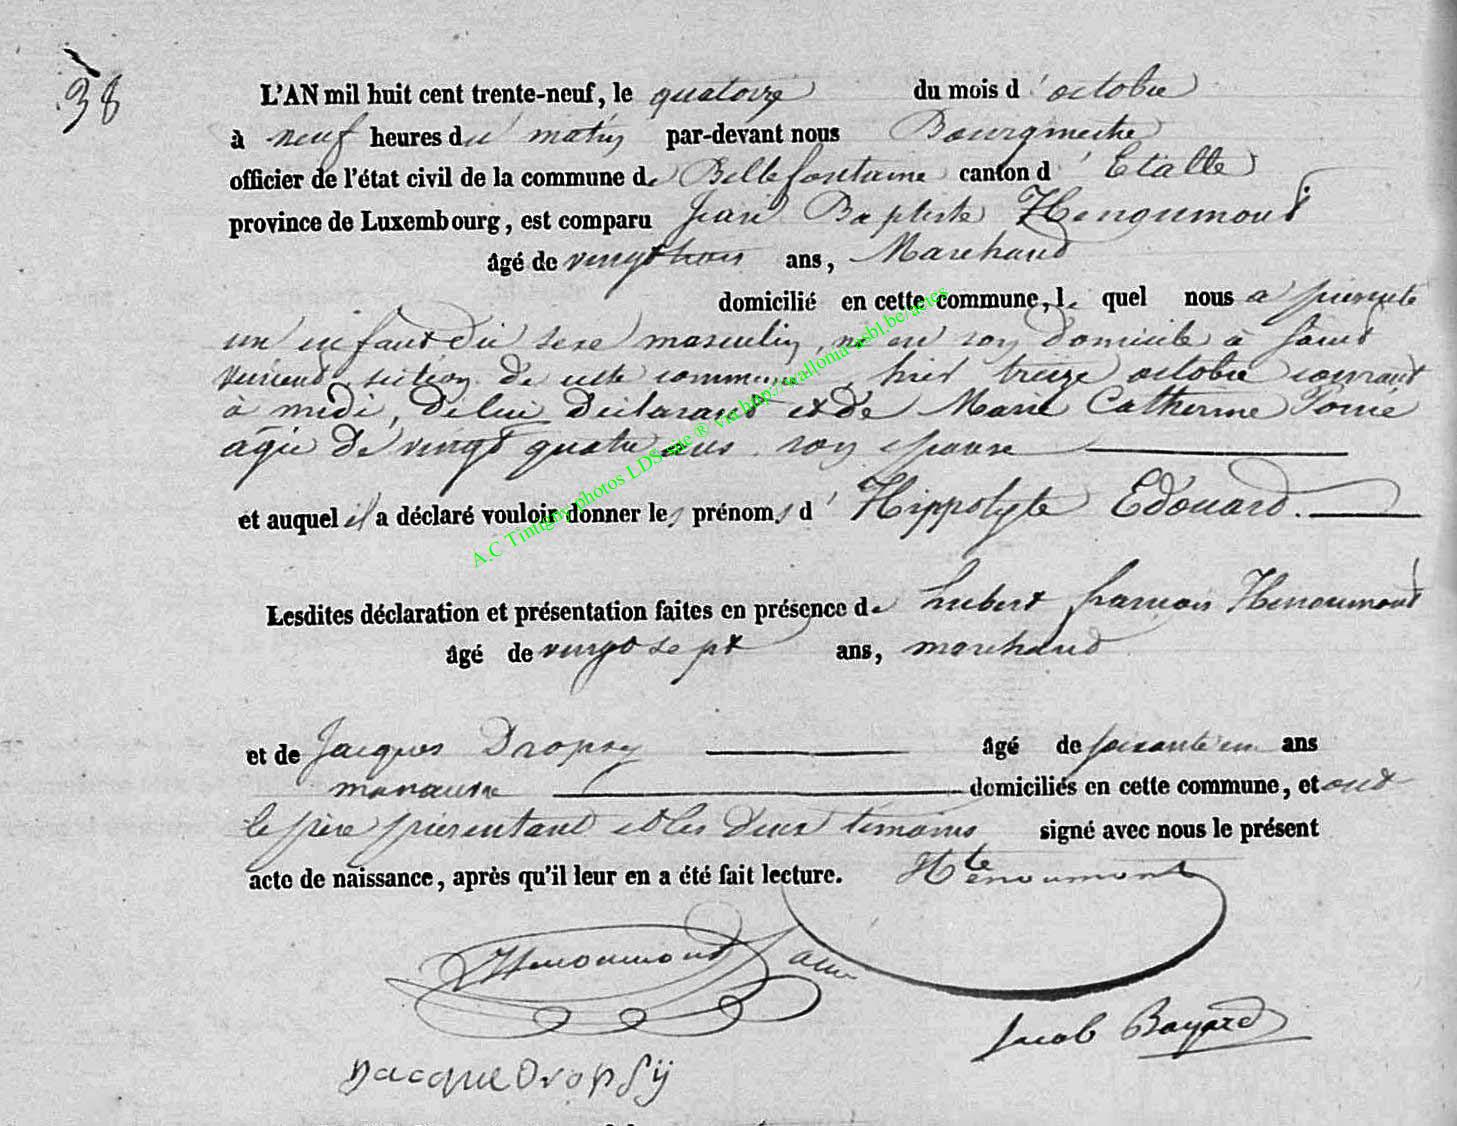 38
L'AN mil huit cent trente-neuf, le quatorze du mois d'octobre
à neuf heures du matin par-devant nous Bourgmestre
officier de l'état civil de la commune de Bellefontaine canton d'Etalle
province de Luxembourg, est comparu Jean Baptiste Henoumont
âgé de vingt trois ans, Marchand
domicilié en cette commune, le quel nous a présenté
un enfant du sexe masculin, né en son domicile à Saint
vincent, section de cette commune, hier treize octobre courant
à midi, de lui déclarant et de Marie Catherine
agée de vingt quatre ans, son épouse
et auquel il a déclaré vouloir donner les prénoms d'Hippolyte Edouard.
Lesdites déclaration et présentation faites en présence de hubert françois Henoumont
âgé de vingt sept ans, marchand
et de Jacques Dropsy âgé de soixante un ans
manœuvre domiciliés en cette commune, et ont
le père présentant et les deux témoins signé avec nous le présent
acte de naissance, après qu'il leur en a été fait lecture. Hte noumont
Henoumont
Jacob Bayard
Jacque Dropsÿ
A.C Tintigny photos LDS site ® via http://wallonia-asbl.be/actes